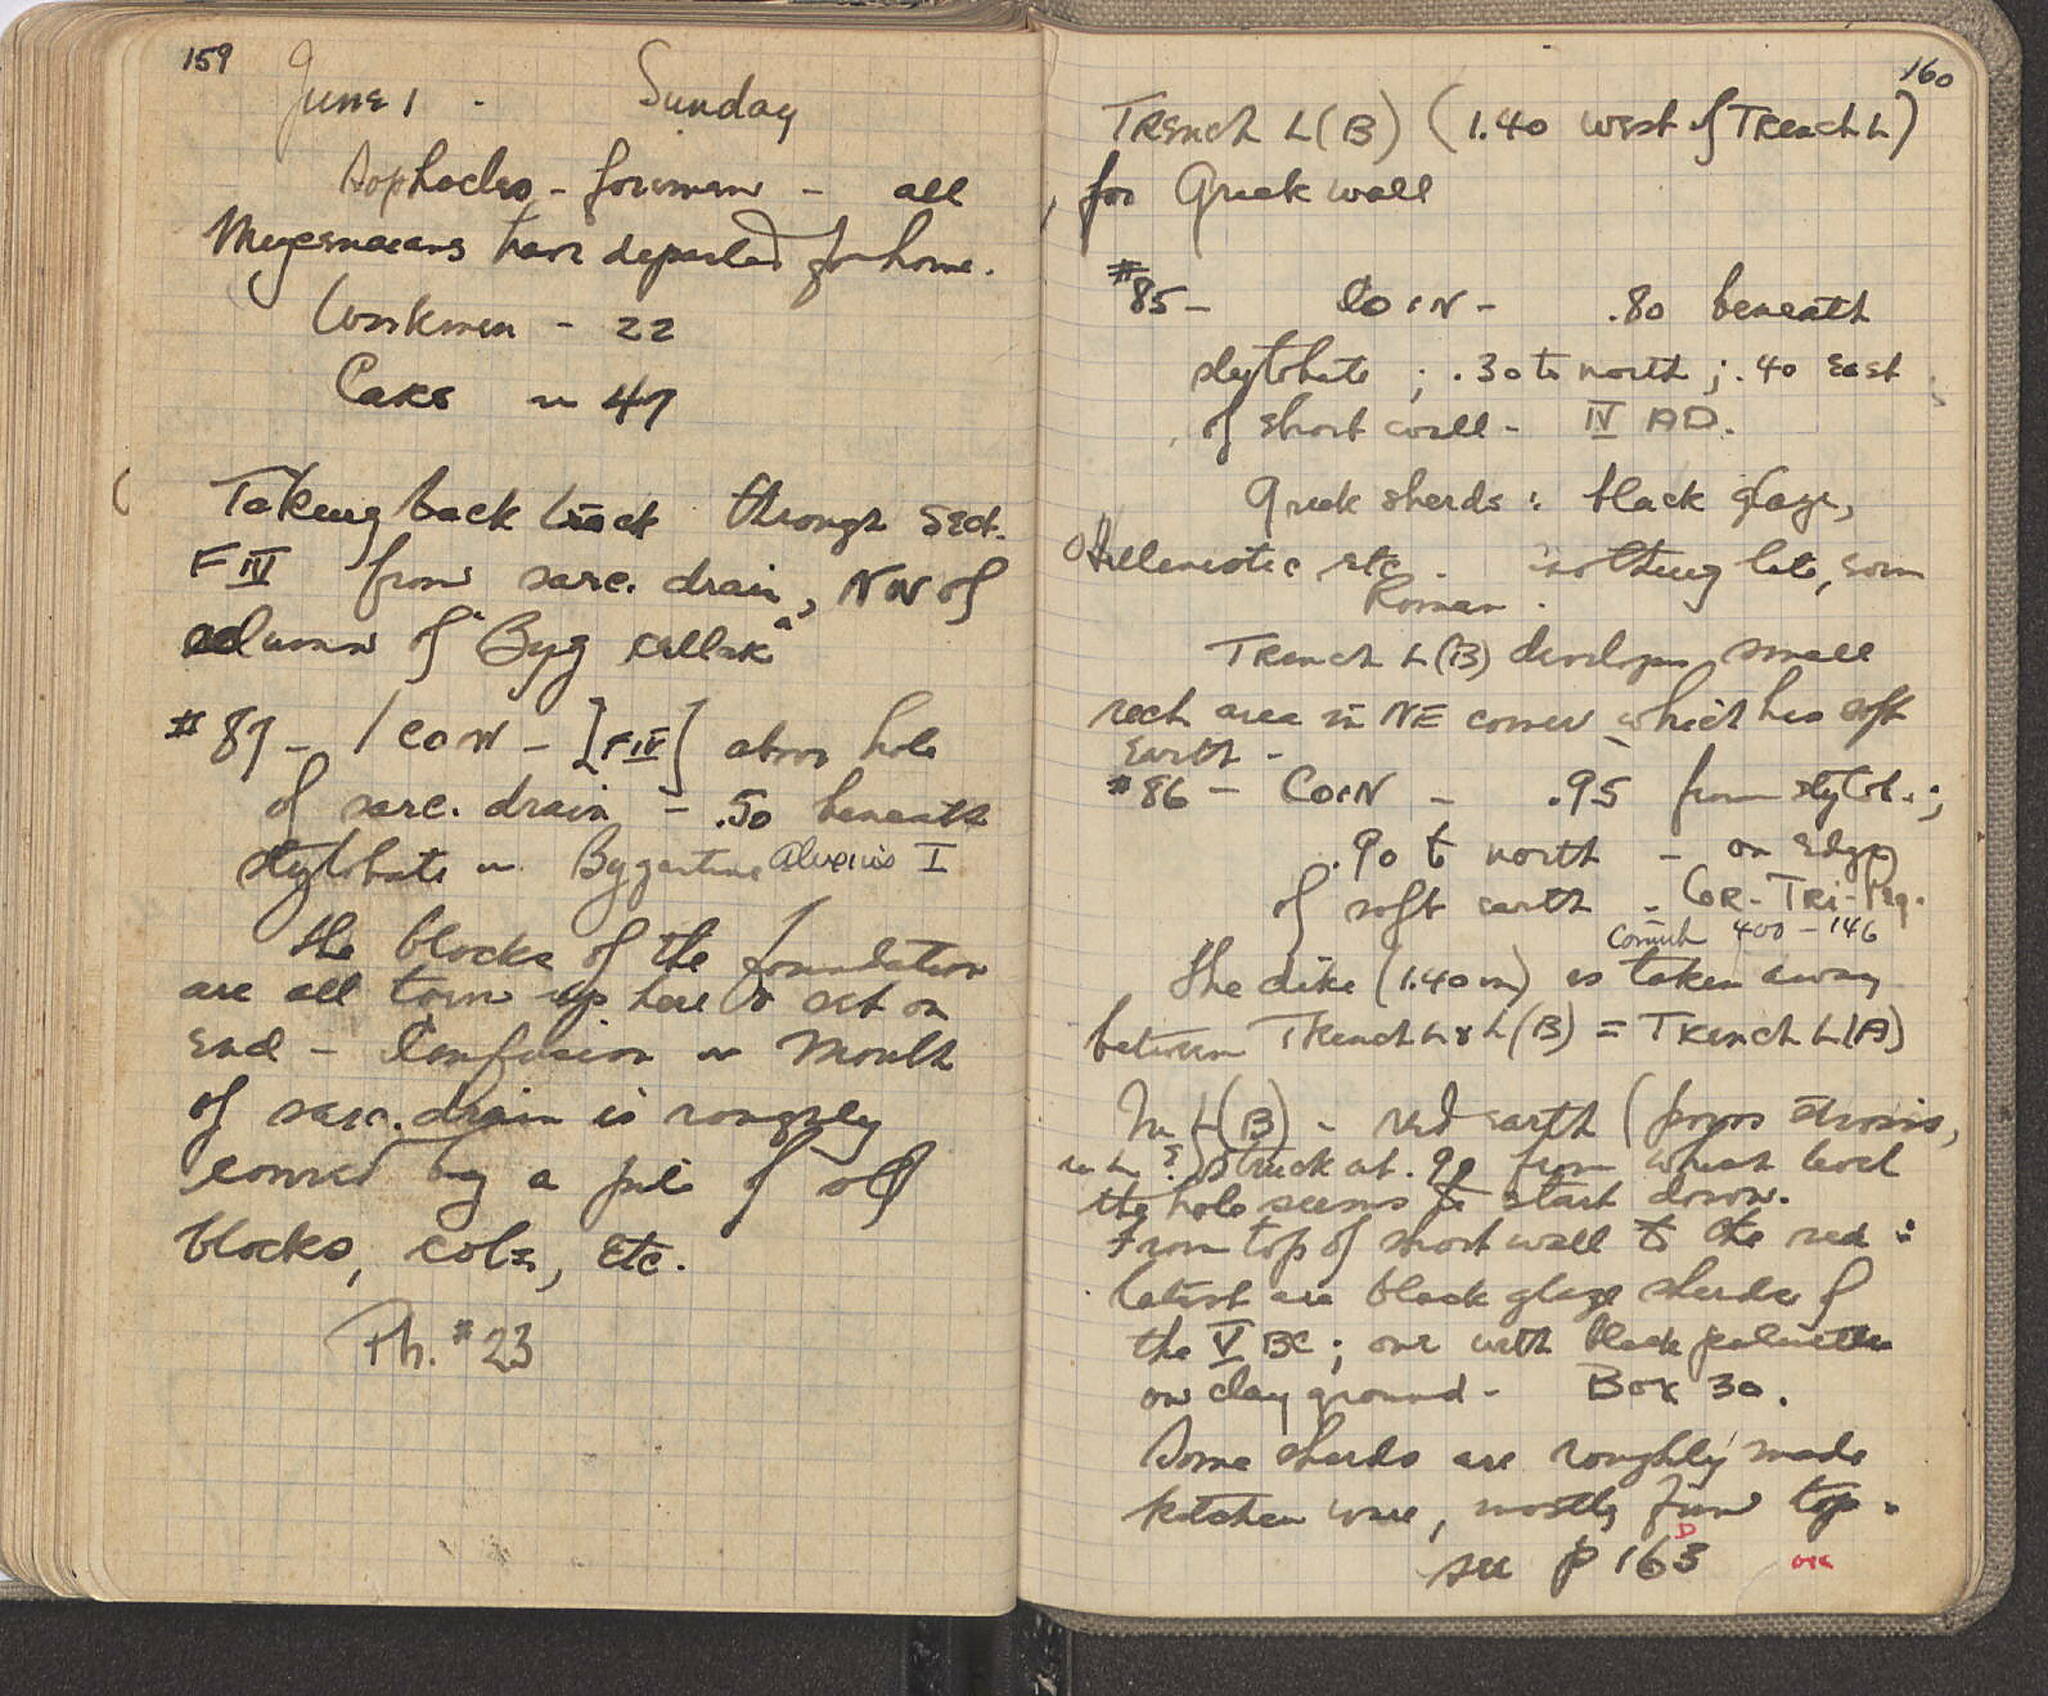 159
June 1 - Sunday
Sophocles - foreman - all
Mycenaeans have departed for home.
Workmen - 22
Cars ~ 47
Taking back track through Sect.
F IV from sarc. drain, NW of
column of "Byz cellar"
#87 - 1 COIN - [F IV] above hole
of sarc. drain - .50 beneath
stylobate ~ Byzantine Alexius I
The blocks of the foundation
are all torn up here & set on
end - Confusion ~ Mouth
of sarc. drain is roughly
covered by a pile of old
blocks, cols, etc.
Ph. #23
160
Trench L(B) (1.40 west of Trench L)
for Greek wall
#85 - COIN - .80 beneath
stylobate ; .30 to north ; .40 east
of short wall - IV AD.
Greek sherds : black glaze,
Hellenistic etc. nothing late, some
Roman.
Trench L(B) develops small
rect area in NE corner which has soft
earth -
#86 - COIN - .95 from stylob. ;
.90 to north - on edge
of soft earth - Cor-Tri-Peg.
Corinth 400-146
The dike (1.40m) is taken away
between Trench L & L(B) = Trench L(A)
In L(B) - red earth (
in L ?) struck at .90 from which level
the hole seems to start down.
From top of short wall to the red :
latest are black glaze sherds of
the V BC ; one with black palmettes
on clay ground - Box 30.
Some sherds are roughly made
kitchen ware, mostly from top.
see p 163
D